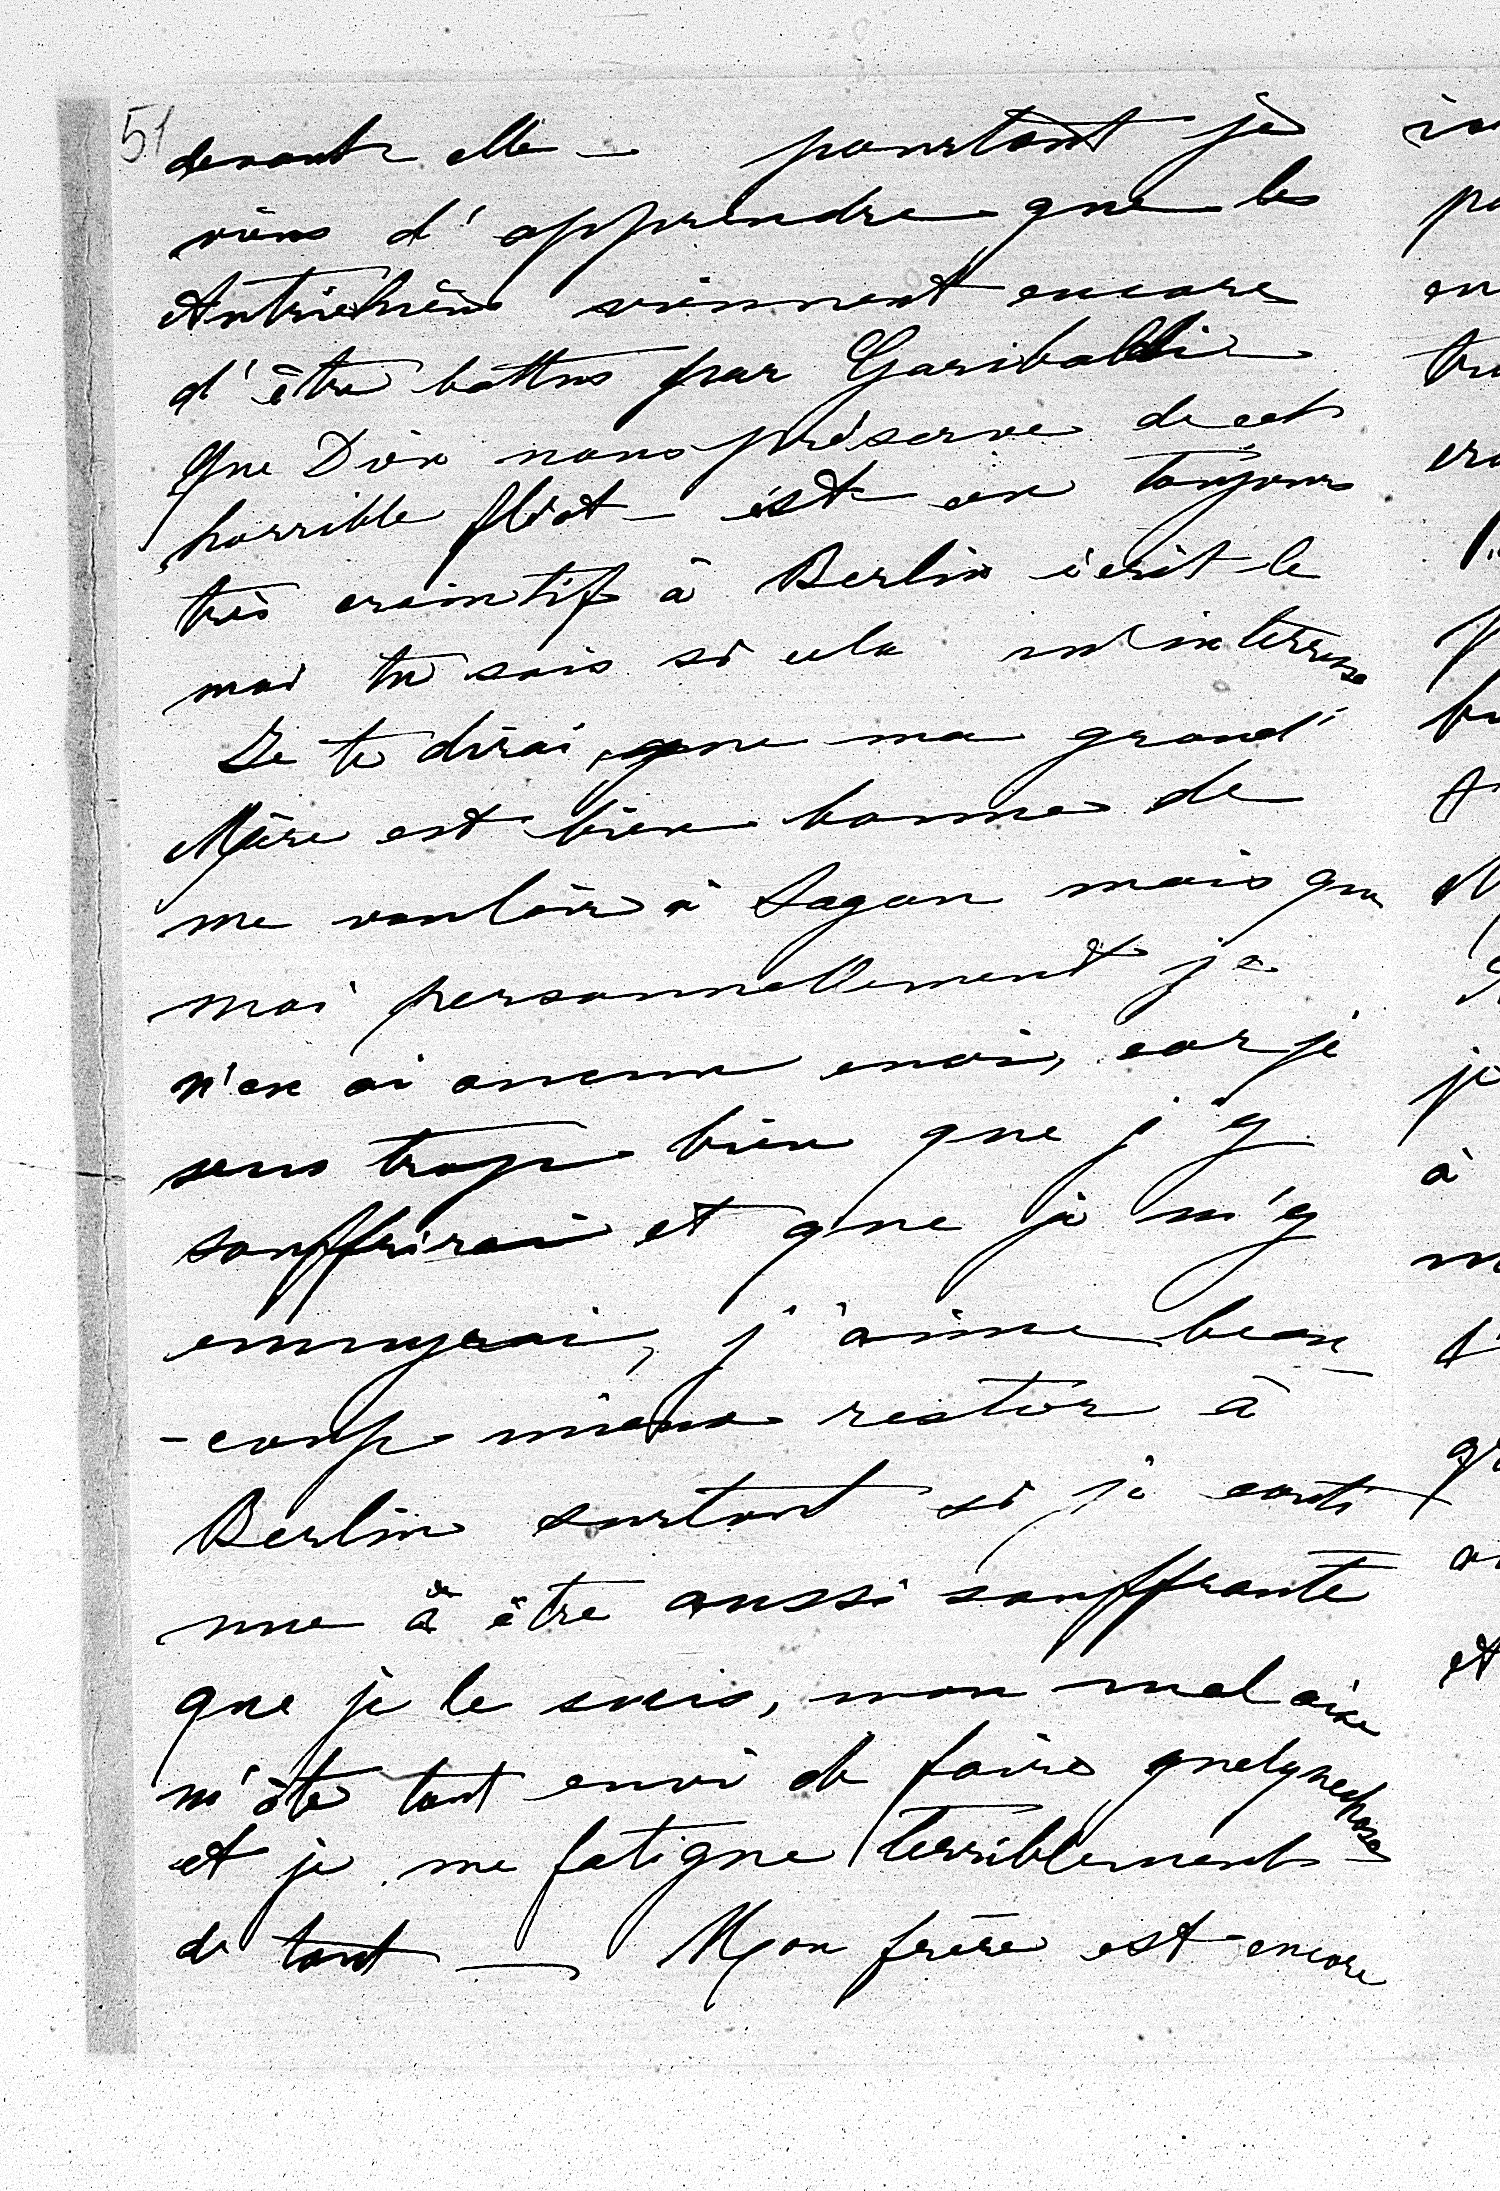 51
devant elle — pourtant je
viens d'apprendre que les
Autrichiens viennent encore
d'être battus par Garibaldi
Que Dieu nous préserve de cet
horrible fléot — est on toujours
très craintif à Berlin écrit le
moi tu sais si cela m'interresse
Je te dirai, que ma grand'
Mère est bien bonne de
me vouloir à Sagan mais que
moi personnellement je
n'en ai aucun envie, car je
sens trop bien que j'y
souffrirai et que je m'y
ennuyerai, j'aime beau
-coup mieux rester à
Berlin surtout si je conti
nue à être aussi souffrante
que je le suis, mon malaise
m'ôte tout envi de faire quelquechose
et je me fatigue terriblement
de tout — Mon frère est encore